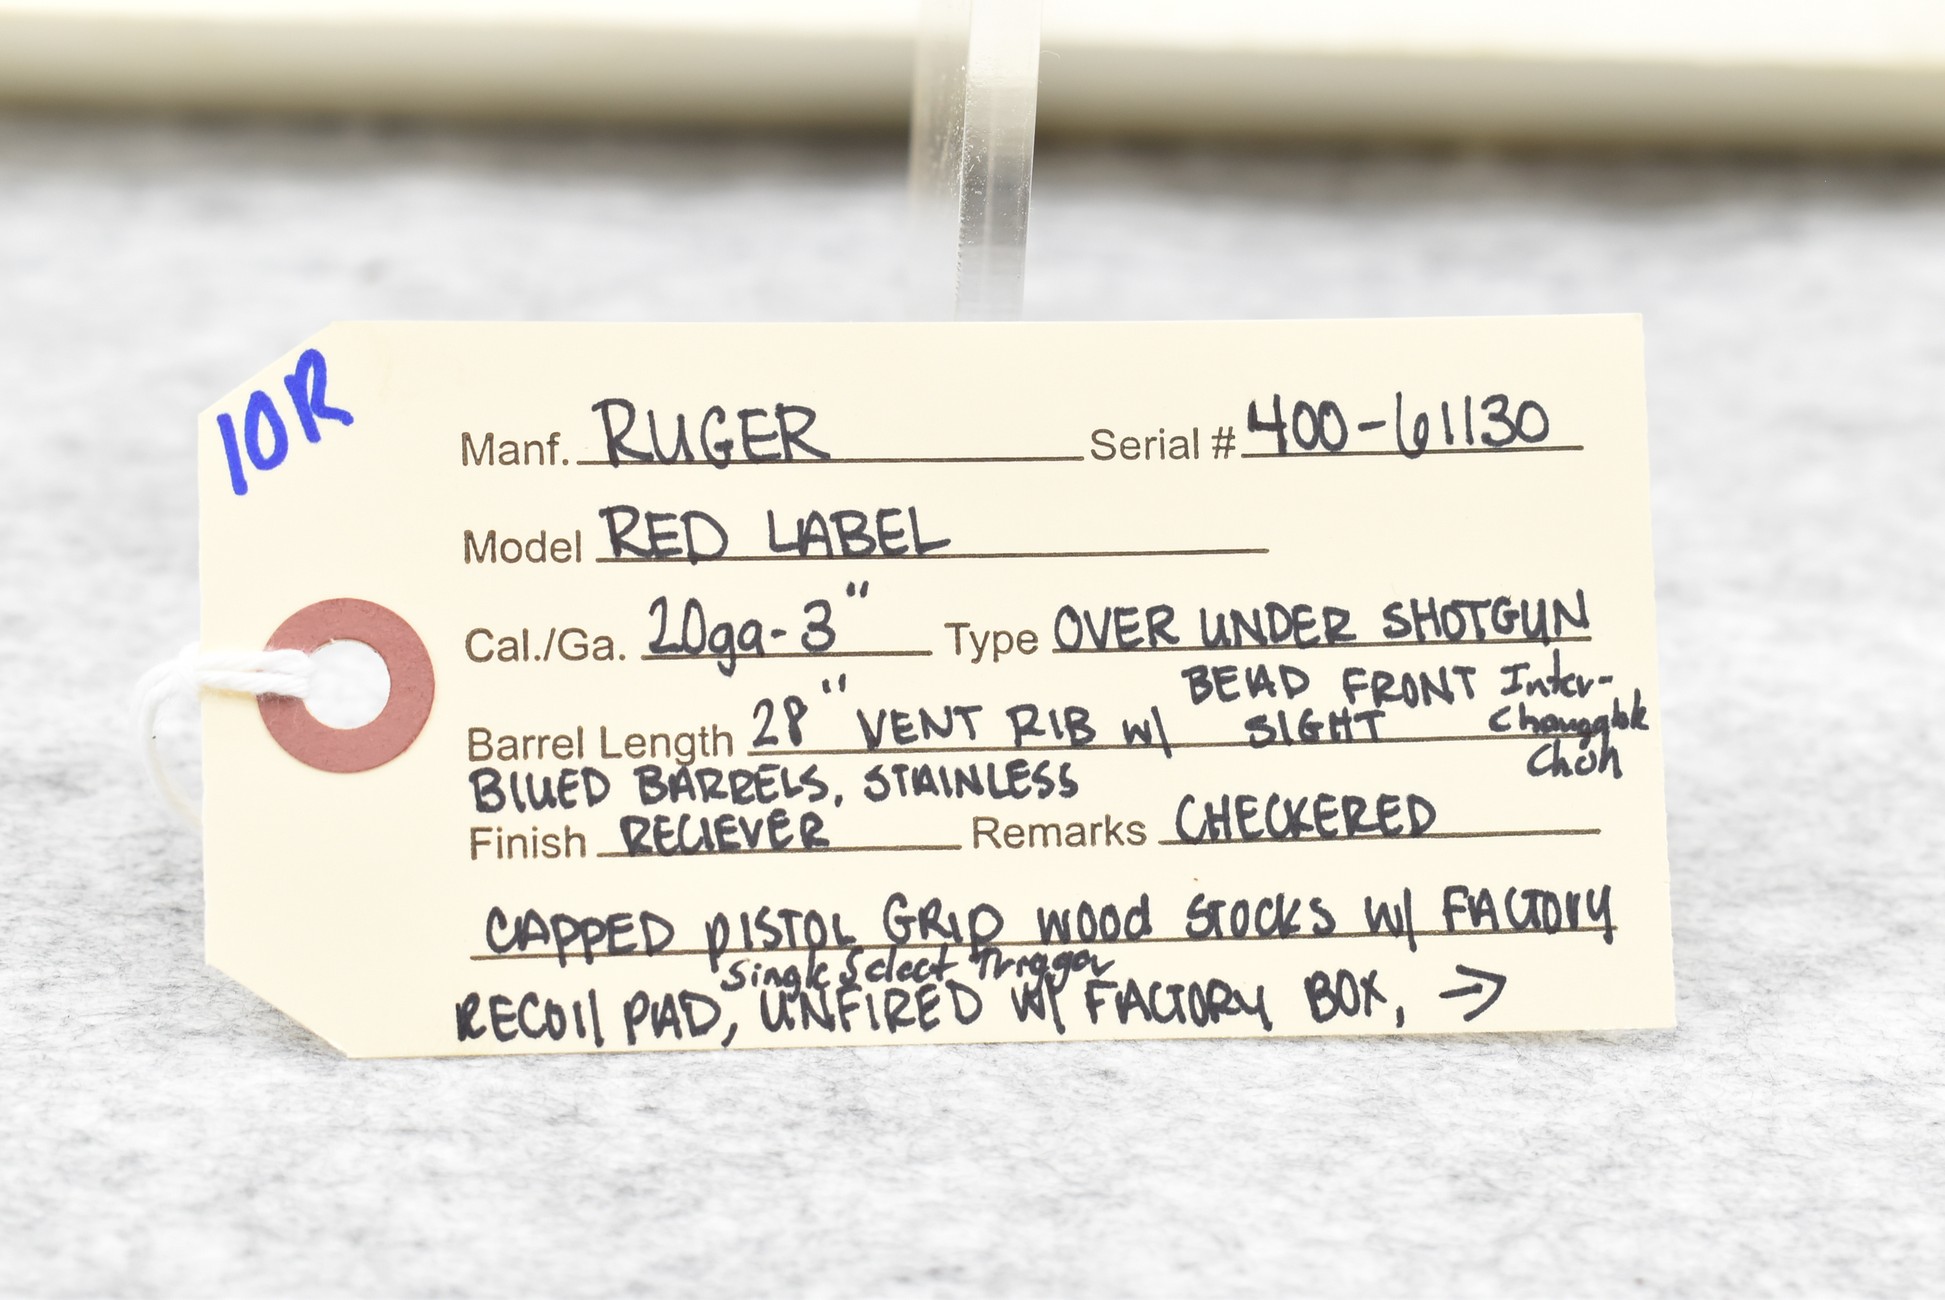 10R
Manf. RUGER Serial # 400-61130
Model RED LABEL
Cal./Ga. 20ga-3" Type OVER UNDER SHOTGUN
Barrel Length 28" VENT RIB w/ BEAD FRONT SIGHT Inter-
Choke
BLUED BARRELS, STAINLESS
Finish RECIEVER Remarks CHECKERED
CAPPED PISTOL GRIP WOOD STOCKS W/ FACTORY
Single Select Trigger
RECOIL PAD, UNFIRED W/ FACTORY BOX, →